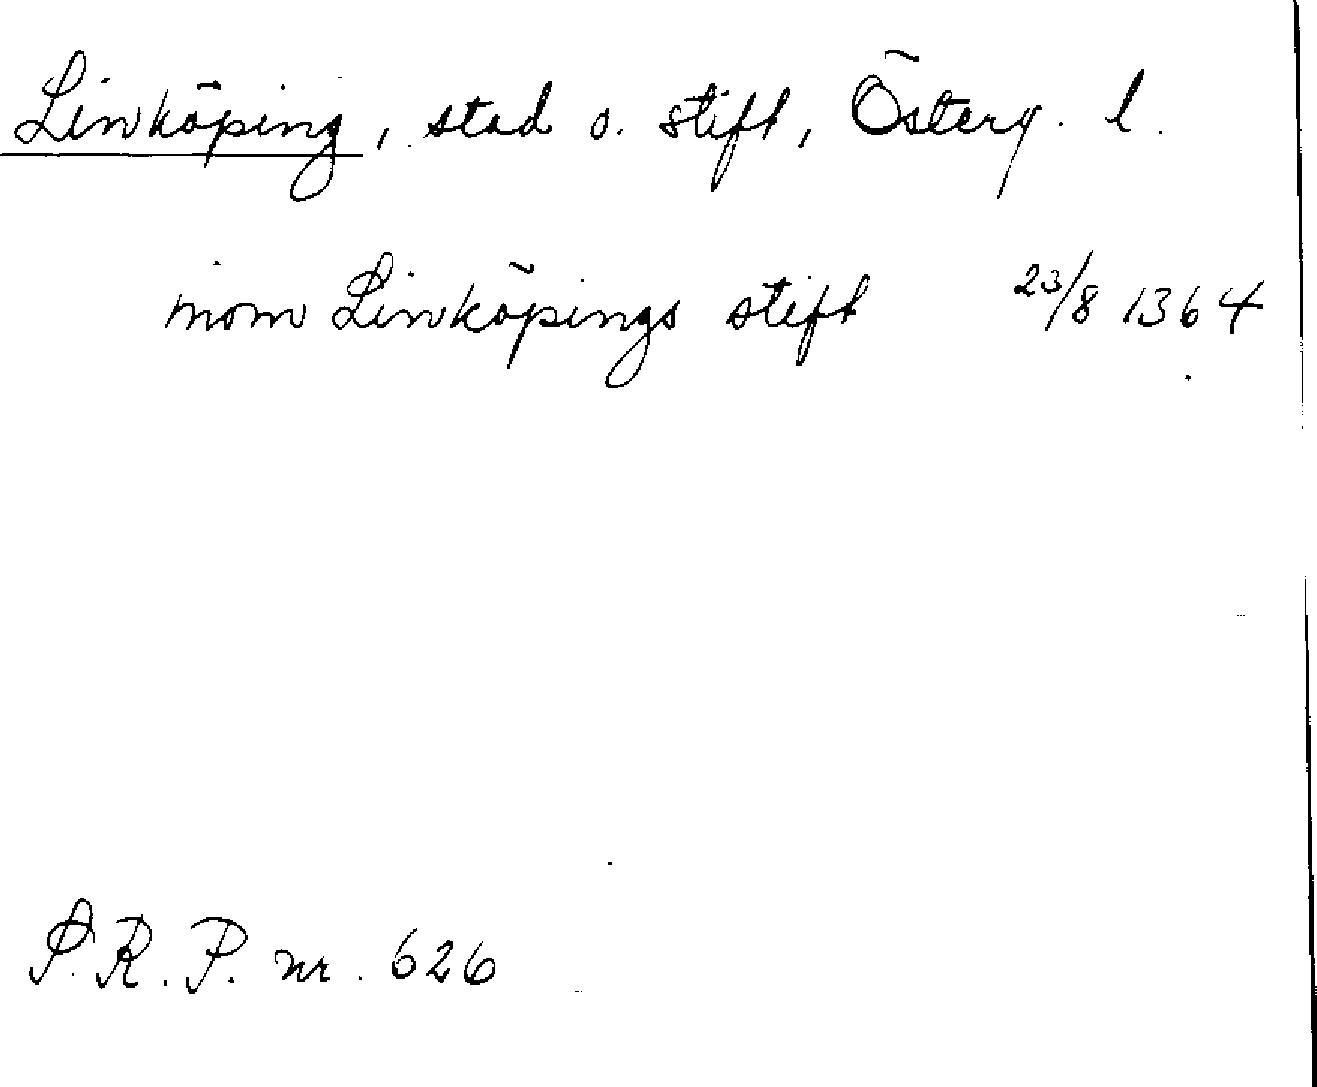 Linköping, stad o. stift, Österg. l.
inom Linköpings stift 23/8 1364
S.R.P. nr. 626